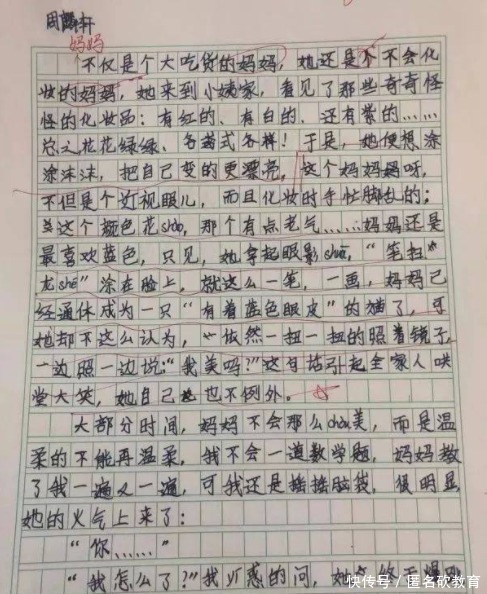 周麟轩
妈妈
不仅是个大吃货的妈妈，她还是个不会化
妆的妈妈，她来到小姨家，看见了那些奇奇怪
怪的化妆品：有红的、有白的、还有紫的……
总之花花绿绿、各式各样！于是，她便想涂
涂沫沫，把自己变的更漂亮，这个妈妈呀，
不但是个近视眼儿，而且化妆时手忙脚乱的；
这个颜色花shào，那个有点老气……妈妈还是
最喜欢蓝色，只见，她拿起眼影shā，“笔扫
龙shé”涂在脸上，就这么一笔，一画，妈妈已
经通体成为一只“有着蓝色眼皮”的猫了，可
她却不这么认为，依然一扭一扭的照着镜子，
一边照一边说：“我美吗？”这句话引起全家人哄
堂大笑，她自己也不例外。
大部分时间，妈妈不会那么chòu美，而是温
柔的不能再温柔，我不会一道数学题，妈妈教
了我一遍又一遍，可我还是摇摇脑袋，很明显
她的火气上来了：
“你……”
“我怎么了？”我疑惑的问，她终于爆
快传号／匿名砍教育